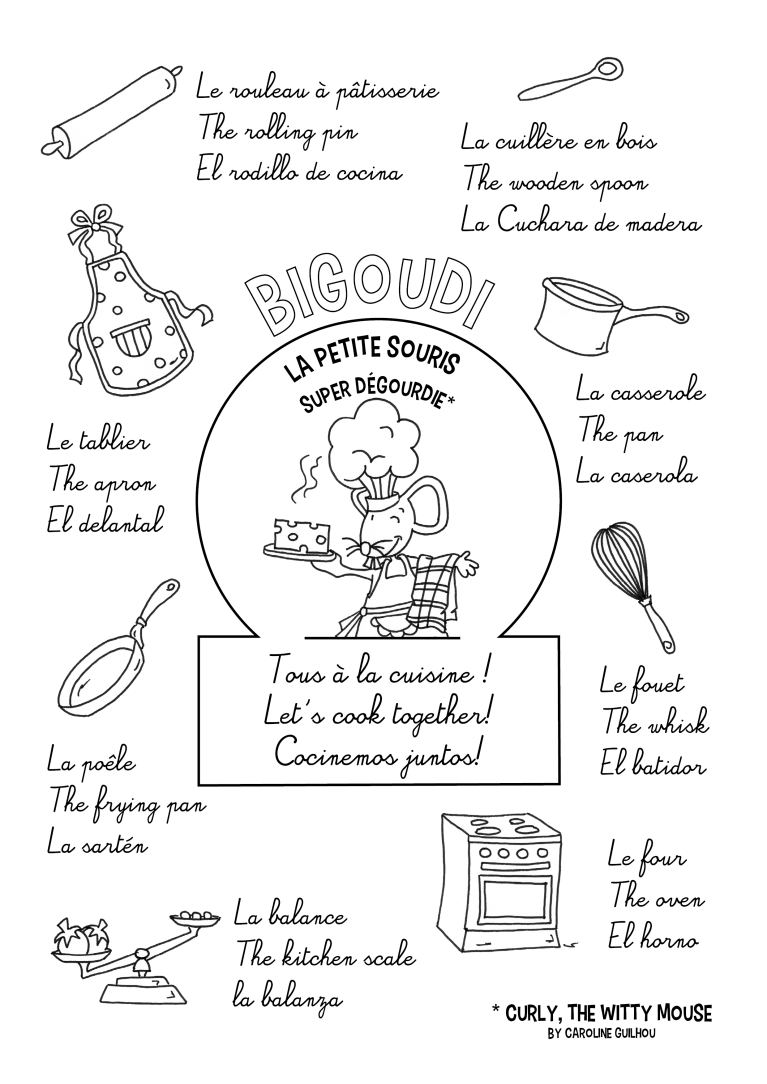 Le rouleau à pâtisserie
The rolling pin
El rodillo de cocina
La cuillère en bois
The wooden spoon
La Cuchara de madera
BIGOUDI
LA PETITE SOURIS
SUPER DÉGOURDIE*
La casserole
The pan
La caserola
Le tablier
The apron
El delantal
Tous à la cuisine !
Let's cook together!
Cocinemos juntos!
Le fouet
The whisk
El batidor
La poêle
The frying pan
La sartén
Le four
The oven
El horno
La balance
The kitchen scale
la balanza
* CURLY, THE WITTY MOUSE
BY CAROLINE GUILHOU